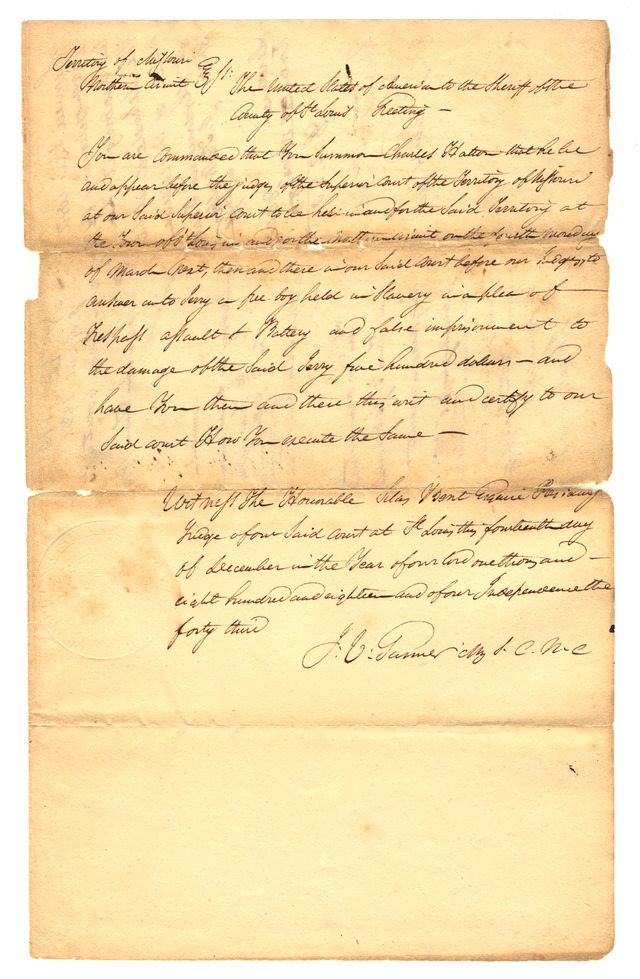 Territory of Missouri
Northern Circuit Sst.
The United States of America to the Sheriff of the
County of St Louis Greeting —
You are commanded that You Summon Charles Hatton that he be
and appear before the judges of the Superior Court of the Territory of Missouri
at our Said Superior Court to be held in and for the Said Territory at
the Town of St Louis in and for the Northern Circuit on the fourth Monday
of March Next, then and there in our Said Court before our Judges, to
answer unto Jerry a free boy held in Slavery in a plea of —
Trespass assault & Battery and false imprisonment to
the damage of the Said Jerry five hundred dollars — and
have You then and there this writ and certify to our
Said court How You execute the Same —
Witness The Honorable Silas Bent Esquire Presiding
Judge of our Said Court at St Louis this fourteenth day
of december in the Year of our lord one thousand —
eight hundred and eighteen and of our Independence the
forty third
J. V. Garnier Clk S. C. N. C